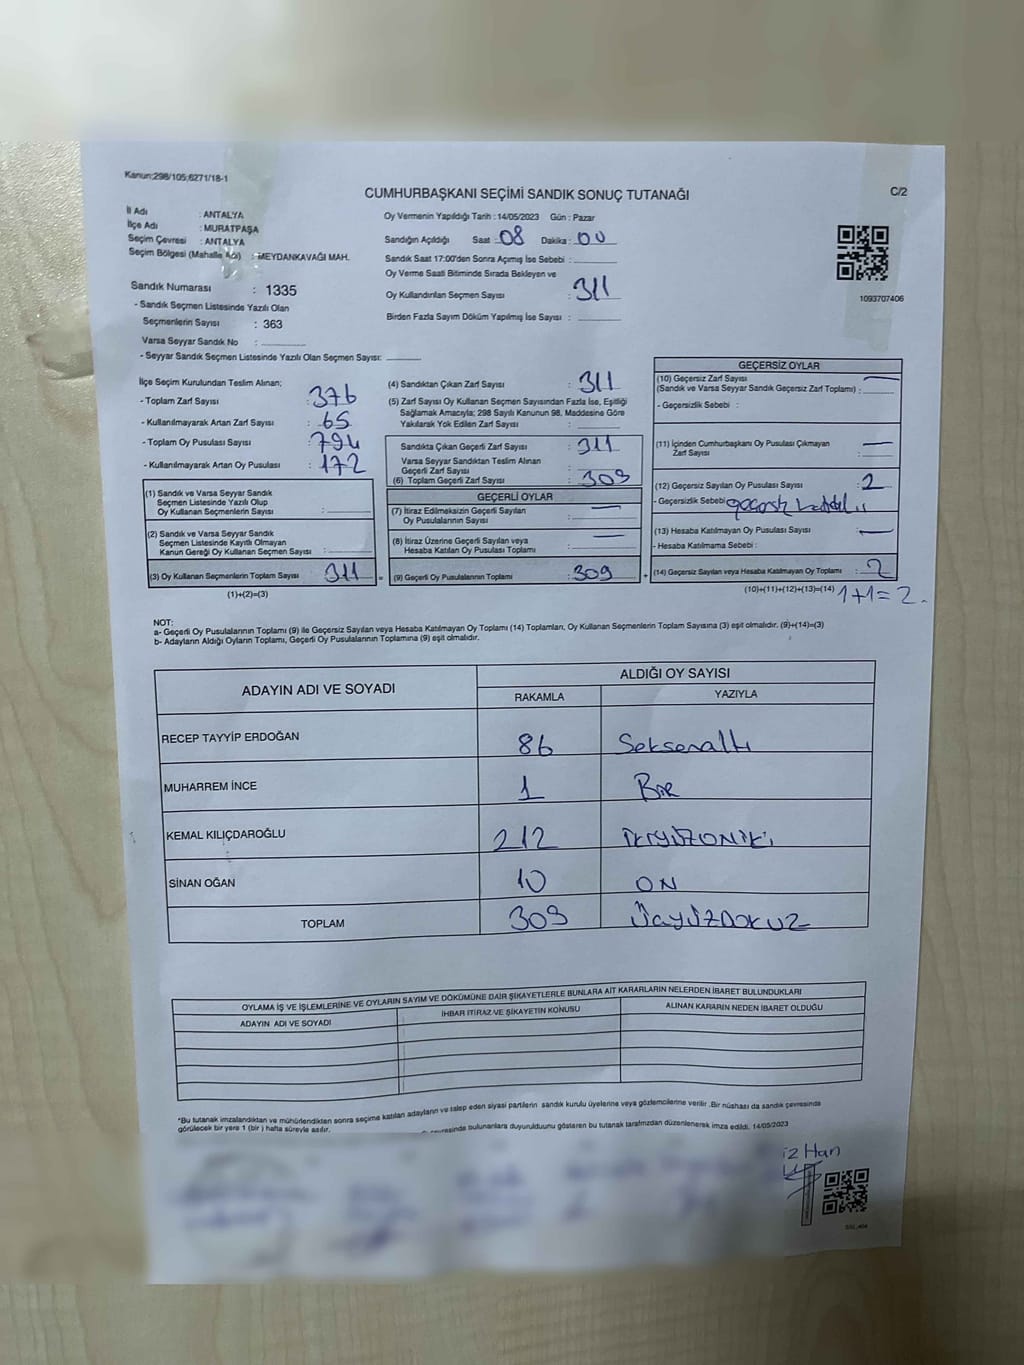 Kanun:298/105;6271/18-1
CUMHURBAŞKANI SEÇİMİ SANDIK SONUÇ TUTANAĞI
C/2
İl Adı : ANTALYA
İlçe Adı : MURATPAŞA
Seçim Çevresi : ANTALYA
Seçim Bölgesi (Mahalle Adı) : MEYDANKAVAĞI MAH.
Sandık Numarası : 1335
- Sandık Seçmen Listesinde Yazılı Olan
Seçmenlerin Sayısı : 363
Varsa Seyyar Sandık No :
- Seyyar Sandık Seçmen Listesinde Yazılı Olan Seçmen Sayısı:
Oy Vermenin Yapıldığı Tarih : 14/05/2023 Gün : Pazar
Sandığın Açıldığı Saat : 08 Dakika : 00
Sandık Saat 17:00'den Sonra Açımış İse Sebebi :
Oy Verme Saati Bitiminde Sırada Bekleyen ve
Oy Kullandırılan Seçmen Sayısı : 311
Birden Fazla Sayım Döküm Yapılmış İse Sayısı :
1093707406
İlçe Seçim Kurulundan Teslim Alınan;
- Toplam Zarf Sayısı : 376
- Kullanılmayarak Artan Zarf Sayısı : 65
- Toplam Oy Pusulası Sayısı : 794
- Kullanılmayarak Artan Oy Pusulası : 172
(1) Sandık ve Varsa Seyyar Sandık
Seçmen Listesinde Yazılı Olup
Oy Kullanan Seçmenlerin Sayısı :
(2) Sandık ve Varsa Seyyar Sandık
Seçmen Listesinde Kayıtlı Olmayan
Kanun Gereği Oy Kullanan Seçmen Sayısı :
(3) Oy Kullanan Seçmenlerin Toplam Sayısı : 311
(1)+(2)=(3)
(4) Sandıktan Çıkan Zarf Sayısı : 311
(5) Zarf Sayısı Oy Kullanan Seçmen Sayısından Fazla İse, Eşitliği
Sağlamak Amacıyla; 298 Sayılı Kanunun 98. Maddesine Göre
Yakılarak Yok Edilen Zarf Sayısı :
Sandıkta Çıkan Geçerli Zarf Sayısı : 311
Varsa Seyyar Sandıktan Teslim Alınan
Geçerli Zarf Sayısı :
(6) Toplam Geçerli Zarf Sayısı : 309
GEÇERLİ OYLAR
(7) İtiraz Edilmeksizin Geçerli Sayılan
Oy Pusulalarının Sayısı : —
(8) İtiraz Üzerine Geçerli Sayılan veya
Hesaba Katılan Oy Pusulası Toplamı : —
= (9) Geçerli Oy Pusulalarının Toplamı : 309
GEÇERSİZ OYLAR
(10) Geçersiz Zarf Sayısı —
(Sandık ve Varsa Seyyar Sandık Geçersiz Zarf Toplamı) :
- Geçersizlik Sebebi :
(11) İçinden Cumhurbaşkanı Oy Pusulası Çıkmayan —
Zarf Sayısı :
(12) Geçersiz Sayılan Oy Pusulası Sayısı : 2
- Geçersizlik Sebebi
(13) Hesaba Katılmayan Oy Pusulası Sayısı : —
- Hesaba Katılmama Sebebi :
+ (14) Geçersiz Sayılan veya Hesaba Katılmayan Oy Toplamı : 2
(10)+(11)+(12)+(13)=(14) 1+1=2.
NOT:
a- Geçerli Oy Pusulalarının Toplamı (9) ile Geçersiz Sayılan veya Hesaba Katılmayan Oy Toplamı (14) Toplamları, Oy Kullanan Seçmenlerin Toplam Sayısına (3) eşit olmalıdır. (9)+(14)=(3)
b- Adayların Aldığı Oyların Toplamı, Geçerli Oy Pusulalarının Toplamına (9) eşit olmalıdır.
ADAYIN ADI VE SOYADI
ALDIĞI OY SAYISI
RAKAMLA YAZIYLA
RECEP TAYYİP ERDOĞAN 86 Seksenaltı
MUHARREM İNCE 1 BİR
KEMAL KILIÇDAROĞLU 212 İKİYÜZONİKİ
SİNAN OĞAN 10 ON
TOPLAM 309 ÜÇYÜZDOKUZ
OYLAMA İŞ VE İŞLEMLERİNE VE OYLARIN SAYIM VE DÖKÜMÜNE DAİR ŞİKAYETLERLE BUNLARA AİT KARARLARIN NELERDEN İBARET BULUNDUKLARI
ADAYIN ADI VE SOYADI İHBAR İTİRAZ VE ŞİKAYETİN KONUSU ALINAN KARARIN NEDEN İBARET OLDUĞU
*Bu tutanak imzalandıktan ve mühürlendikten sonra seçime katılan adayların ve talep eden siyasi partilerin sandık kurulu üyelerine veya gözlemcilerine verilir .Bir nüshası da sandık çevresinde
görülecek bir yere 1 (bir ) hafta süreyle asılır.
bulunanlara duyurulduunu gösteren bu tutanak tarafımızdan düzenlenerek imza edildi. 14/05/2023
iz Han